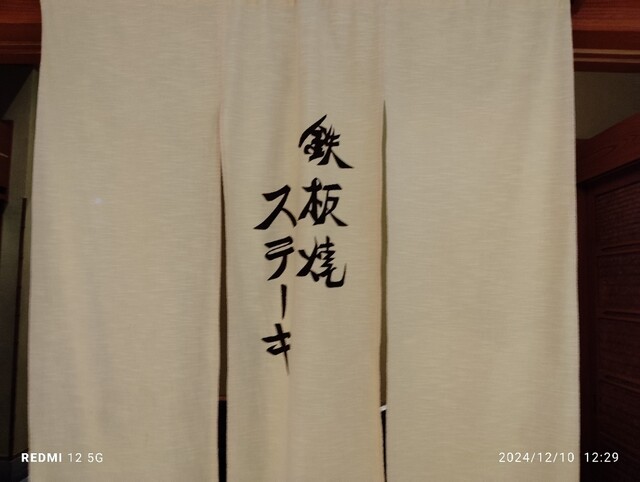 鉄板焼
ステーキ
REDMI 12 5G
2024/12/10 12:29